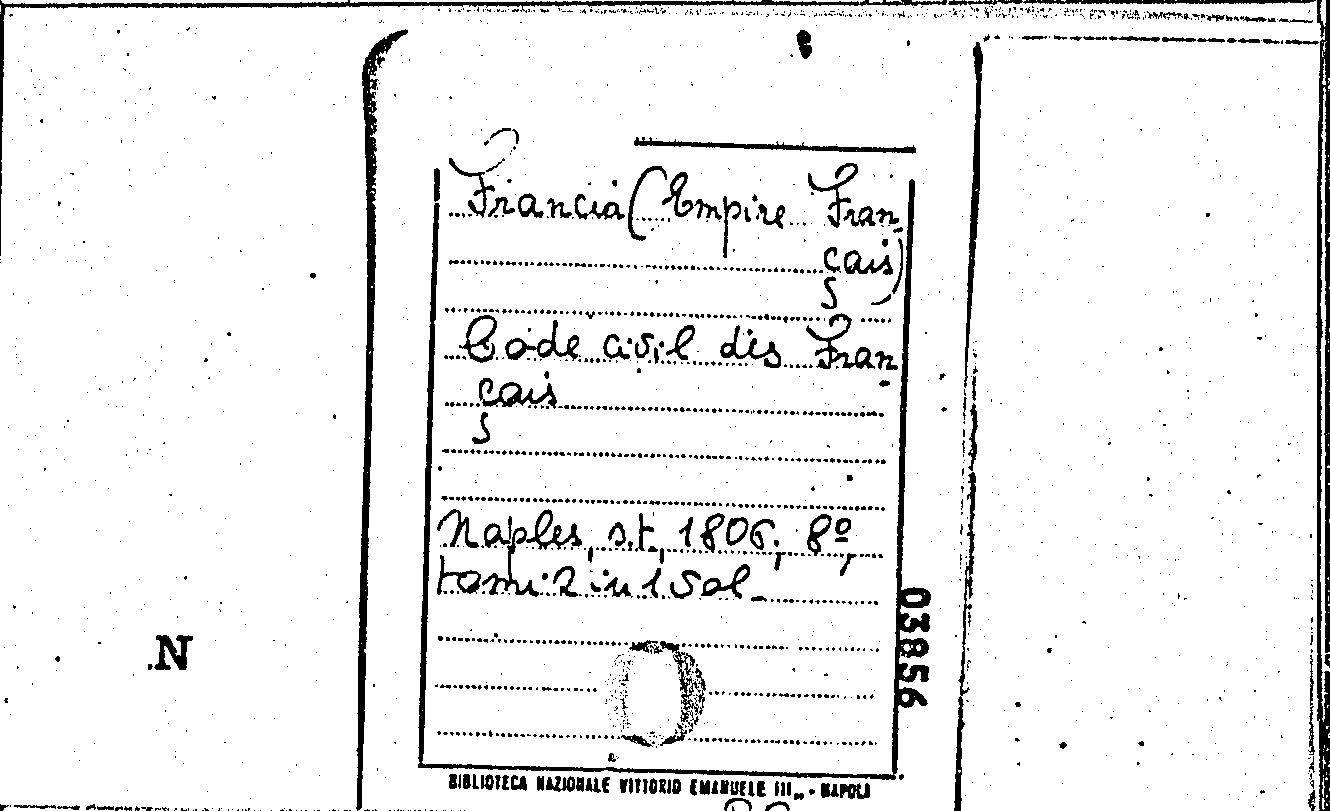 Francia (Empire Fran
çais)
Code civil des Fran-
çais
Naples, s.t., 1806; 8º,
tomi 2 in 1 vol._
03856
N
BIBLIOTECA NAZIONALE VITTORIO EMANUELE III„ - NAPOLI